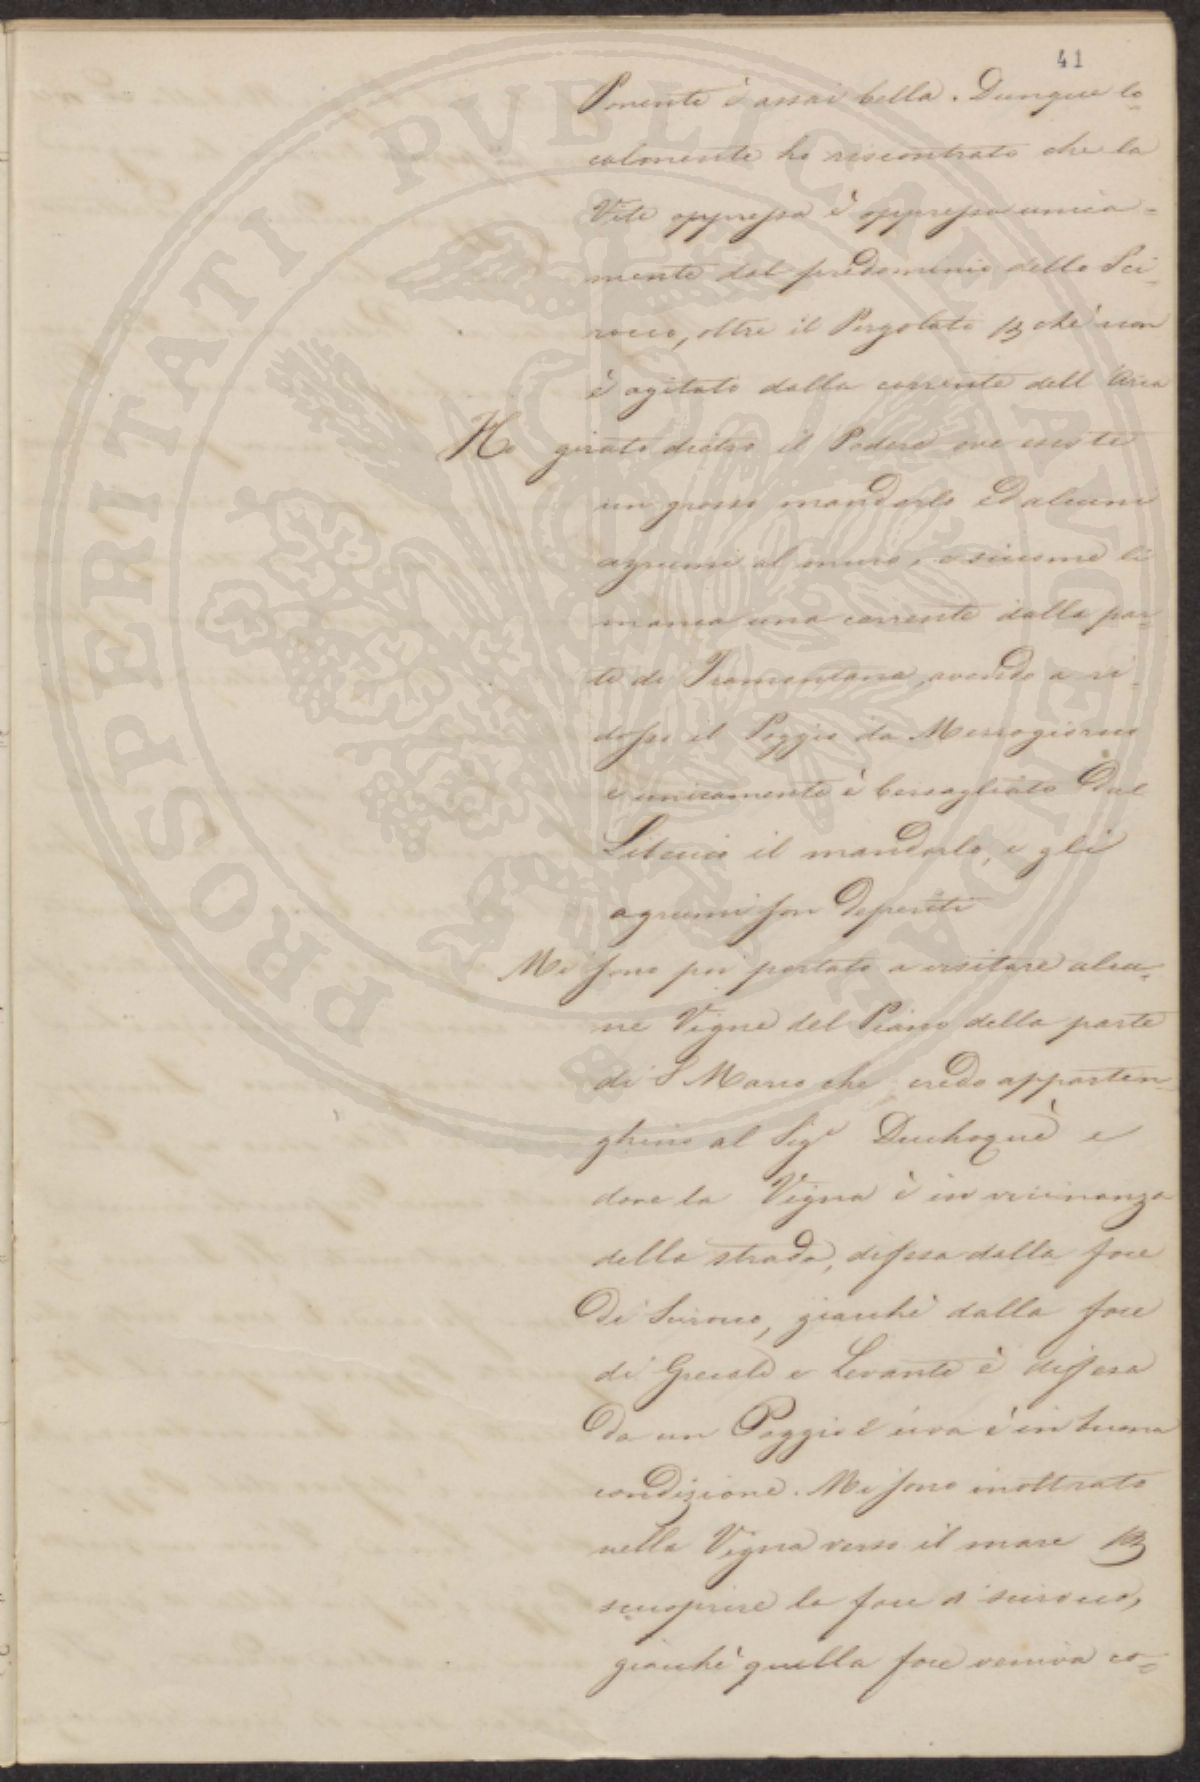 41
Ponente è assai bella. Dunque lo-
calmente ho riscontrato che la
Vite oppressa è oppressa unica-
mente dal predominio dello Sci-
rocco, oltre il Pergolato che non
è agitato dalla corrente dell'Aria
Ho girato dietro il Podere ove esiste
un grosso mandorlo ed alcuni
agrumi al muro, e siccome li
manca una corrente dalla par-
te di Tramontana, avendo a ri-
dosso il Poggio da Mezzogiorno
e unicamente è bersagliato dal
Libeccio il mandorlo, e gli
agrumi son deperiti
Mi sono poi portato a visitare alcu-
ne Vigne del Piano della parte
di S Marco che credo apparten-
ghino al Sigr Duchoquè e
dove la Vigna è in vicinanza
della strada, difesa dalla foce
di Scirocco, giacchè dalla foce
di Grecale e Levante è difesa
da un Poggio l'uva è in buona
condizione. Mi sono inoltrato
nella Vigna verso il mare
scuoprire la foce di scirocco,
giacchè quella foce veniva co-
PROSPERITATI PVBLICAE AVGENDAE